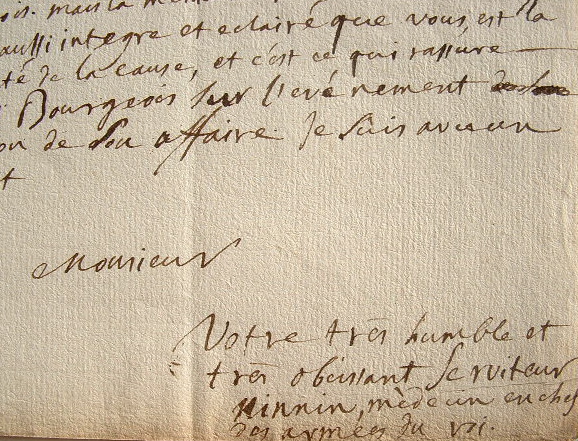 ois. mais la
aussi integre et eclairé que vous, est la
té de la cause, et c'est ce qui rassure
Bourgeois sur l'evénement
on de son affaire. Je suis avec un
t
Monsieur
Votre trés humble et
trés obeissant serviteur
ninnin, médecin en chef
des armées du roi.